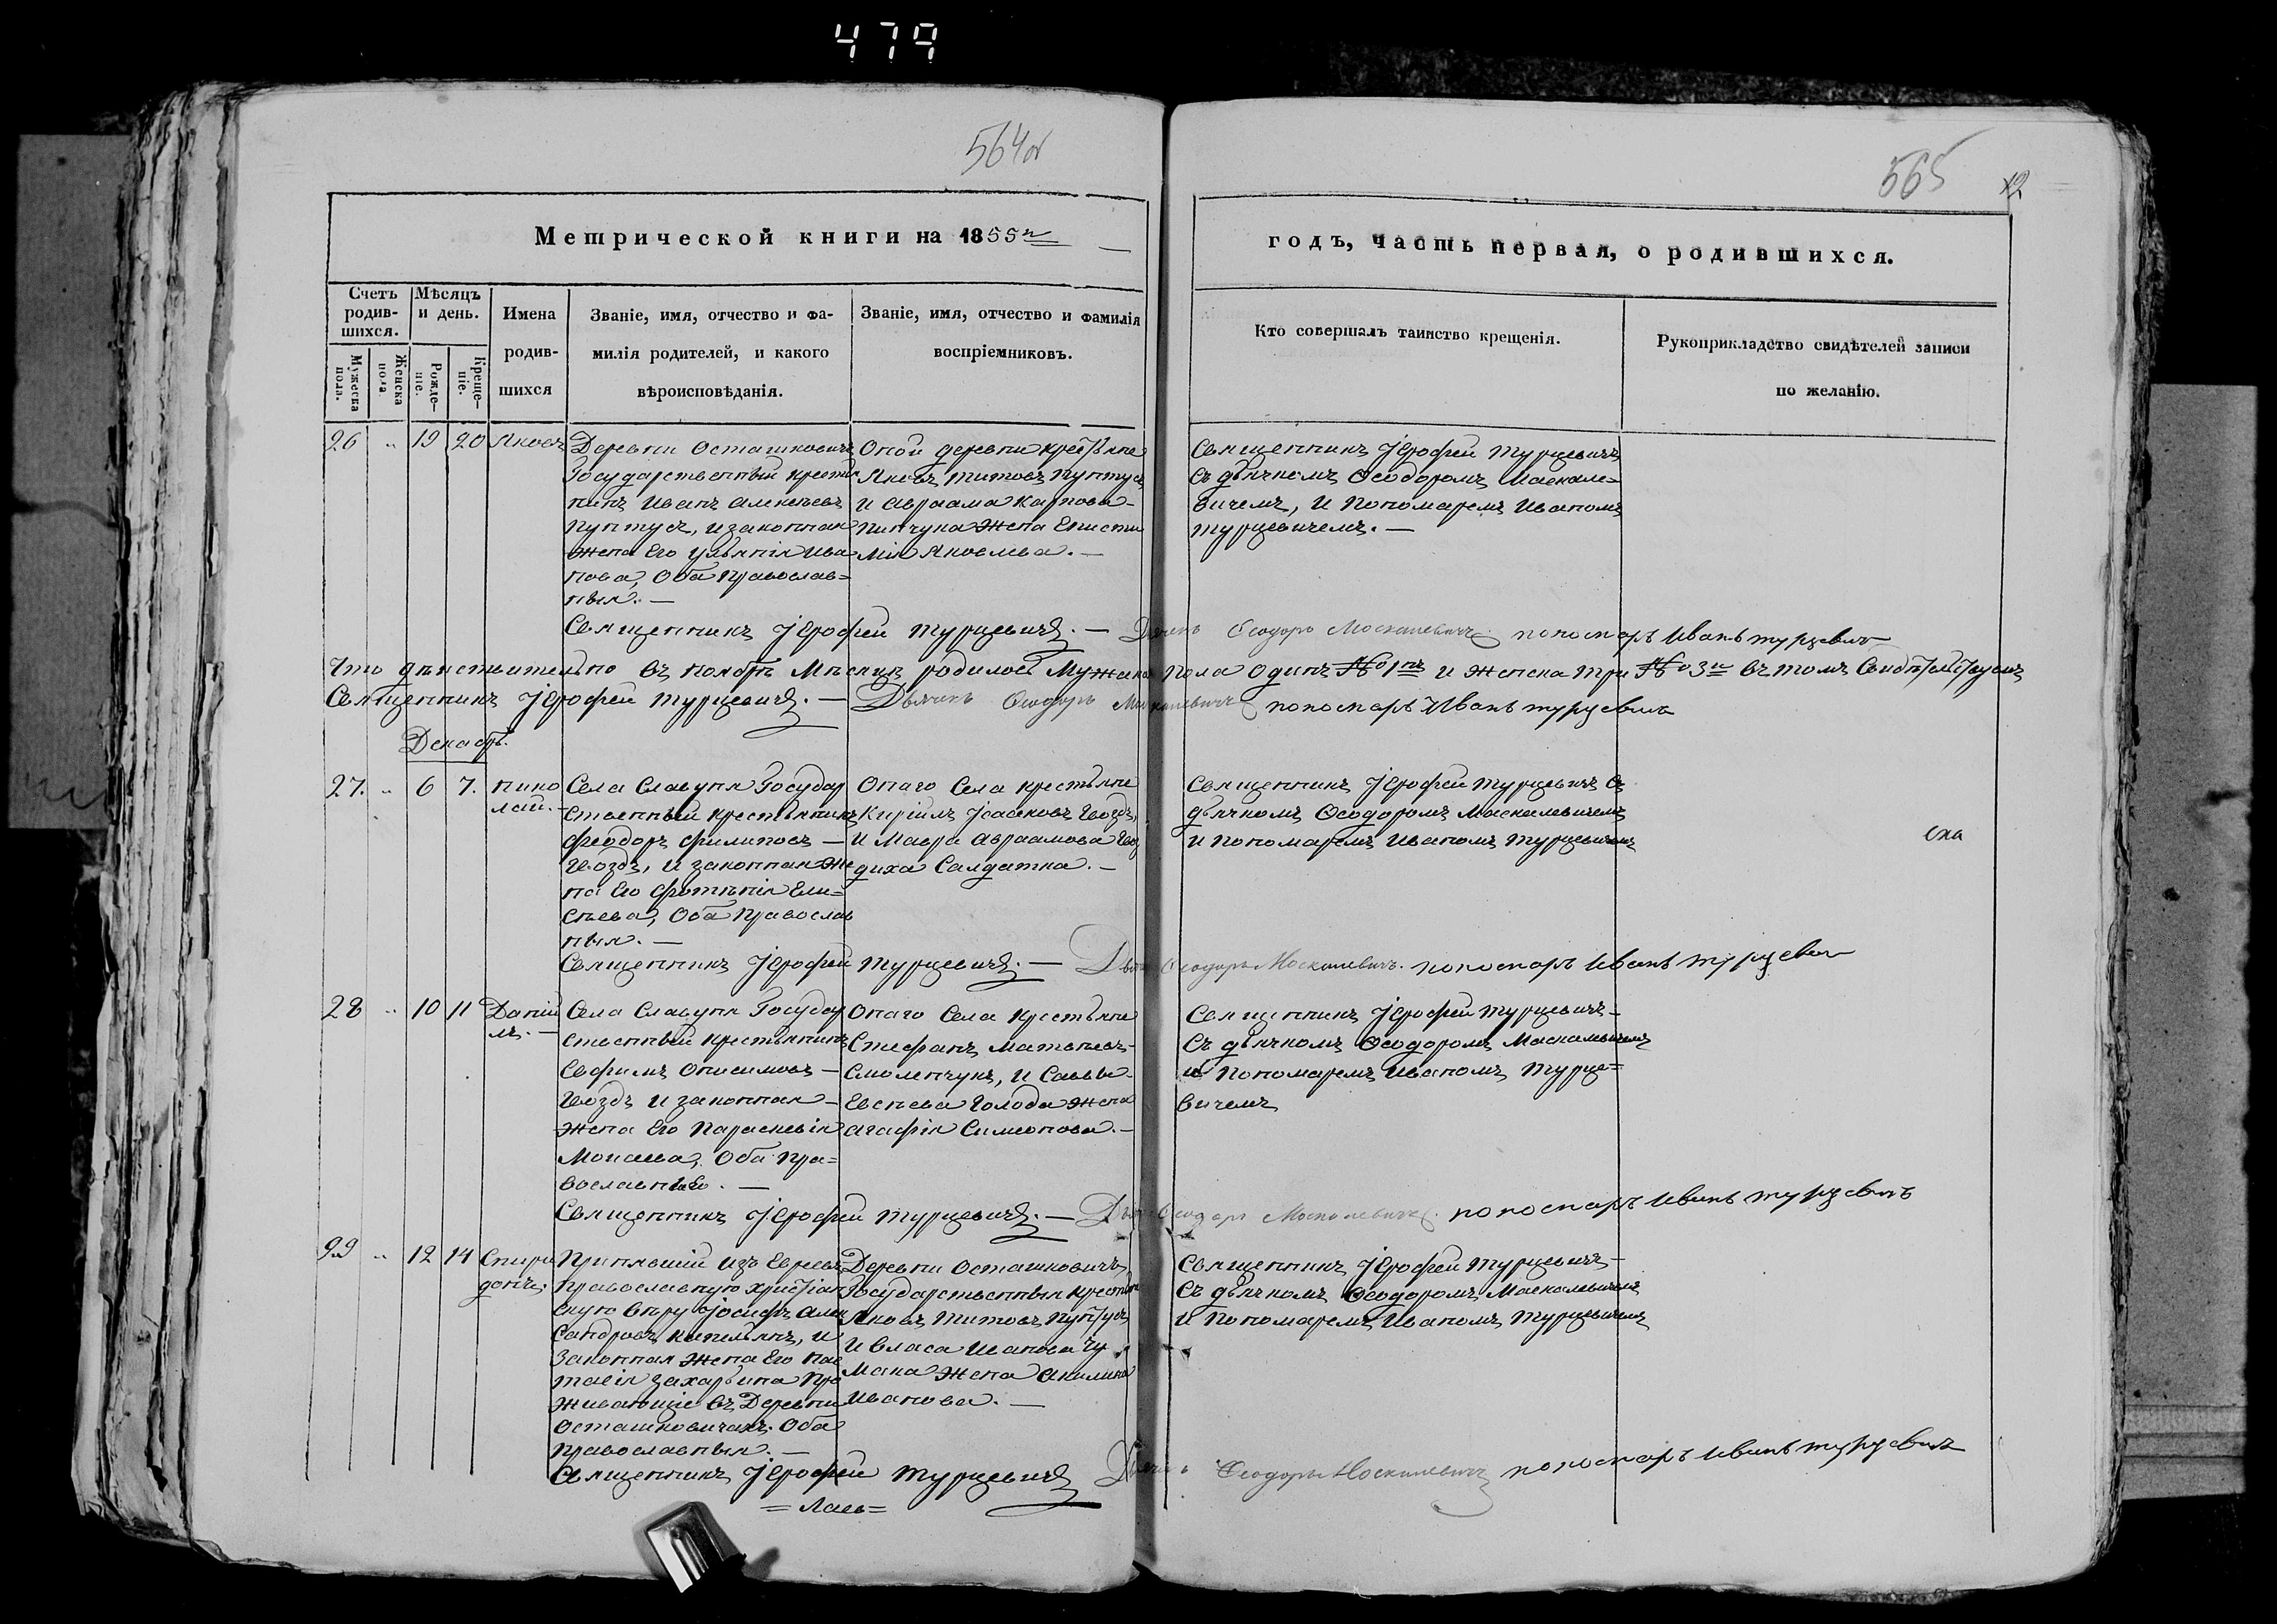 479
564об
565
12
Метрической книги на 1855й
годъ, часть первая, о родившихся.
Счетъ родив-шихся.
Мѣсяцъ и день.
Имена родив-шихся
Званіе, имя, отчество и фа-
милія родителей, и какого
вѣроисповѣданія.
Званіе, имя, отчество и фамилія
воспріемниковъ.
Кто совершалъ таинство крещенія.
Рукоприкладство свидѣтелей записи
по желанію.
Мужеска пола.
Женска пола.
Рожде-ніе.
Креще-ніе.
26 „ 19 20 Яковъ
Деревни Осташковичъ
Государственный крестья
нинъ Иванъ Алексѣевъ
Пунтусъ, и законная
жена Его Ульянія Ива
нова, Оба Православ=
ныя. —
Оной деревни крестьяне
Яковъ Титовъ Пунтусъ
и Авраама Карпова
Пинчука жена Еписти
мія Яковлева. —
Священникъ Іерофей Турцевичъ
съ дьячкомъ Ѳеодоромъ Маскале=
вичемъ, и Пономаремъ Иваномъ
Турцевичемъ. —
Священникъ Іерофей Турцевичъ. — Дьячекъ Ѳеодоръ Москалевичъ пономарь Иванъ турцевичъ
Что дѣйствительно въ Ноябрѣ Мѣсяцѣ родилось Мужеска Пола Одинъ № 1й и женска три № 3й въ томъ Свидѣтельствуемъ
Священникъ Іерофей Турцевичъ. — Дьячекъ Ѳеодоръ Москалевичъ пономарь Иванъ турцевичъ
Декабрь.
27. „ 6 7. Нико
лай. —
Села Славуня Государ
ственный крестьянинъ
Феодоръ Филиповъ —
Гвоздь, и законная же
на Его Фотинія Ели=
сѣева, Оба Православ
ныя. —
Онаго Села крестьяне
Кирііл Іоаковъ Гвоздь,
и Мавра Авраамова Гвоз
диха Салдатка. —
Священникъ Іерофей Турцевичъ съ
дьячкомъ Ѳеодоромъ Маскалевичемъ
и Пономаремъ Иваномъ Турцевичемъ
Священникъ Іерофей Турцевичъ. — Дьячекъ Ѳеодоръ Москалевичъ. пономарь Иванъ турцевичъ
28 „ 10 11 Даніи
лъ. —
Села Славуня Государ
ственный крестьянинъ
Евфимъ Онисимовъ —
Гвоздь и законная —
жена Его Параскевія
Моисеева, Оба Пра=
вославные. —
Онаго Села крестьяне
Стефанъ Матвѣевъ
Смоленчукъ, и Саввы
Евсѣева Голода жена
Агафія Симеонова. —
Священникъ Іерофей Турцевичъ —
съ дьячкомъ Ѳеодоромъ Маскалевичемъ
и Пономаремъ Иваномъ Турце=
вичемъ
Священникъ Іерофей Турцевичъ. — Дьячекъ Ѳеодоръ Москалевичъ. пономарь Иванъ турцевичъ
29 „ 12 14 Спири
донъ.
Принявшій изъ Евреевъ
Православную христіан
скую вѣру Іосифъ Алек
сандровъ, и
Законная жена Его Нас
тасія Захарьина Про
живающіе въ Деревни
Осташковичахъ. Оба
Православныя. —
Деревни Осташковичъ,
Государственныя крестьяне
Яковъ Титовъ Пунтусъ
и Власа Иванова
жена Акилина
Иванова. —
Священникъ Іерофей Турцевичъ —
съ дьячкомъ Ѳеодоромъ Маскалевичемъ
и Пономаремъ Иваномъ Турцевичемъ
Священникъ Іерофей Турцевичъ Дьячекъ Ѳеодоръ Москалевичъ пономарь Иванъ турцевичъ